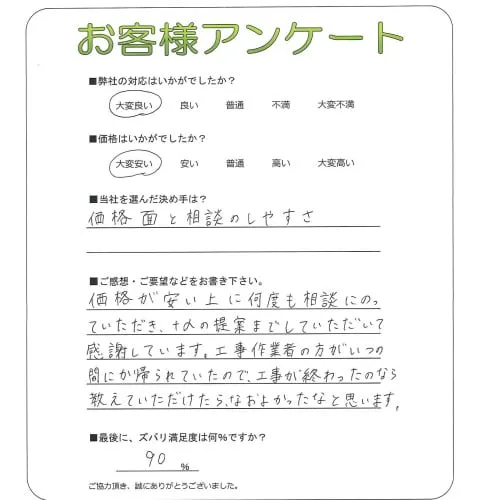 お客様アンケート
■弊社の対応はいかがでしたか？
大変良い 良い 普通 不満 大変不満
■価格はいかがでしたか？
大変安い 安い 普通 高い 大変高い
■当社を選んだ決め手は？
価格面と相談のしやすさ
■ご感想・ご要望などをお書き下さい。
価格が安い上に何度も相談にのっ
ていただき、+αの提案までしていただいて
感謝しています。工事作業者の方がいつの
間にか帰られていたので、工事が終わったのなら
教えていただけたら、なおよかったなと思います。
■最後に、ズバリ満足度は何％ですか？
90 %
ご協力頂き、誠にありがとうございました。